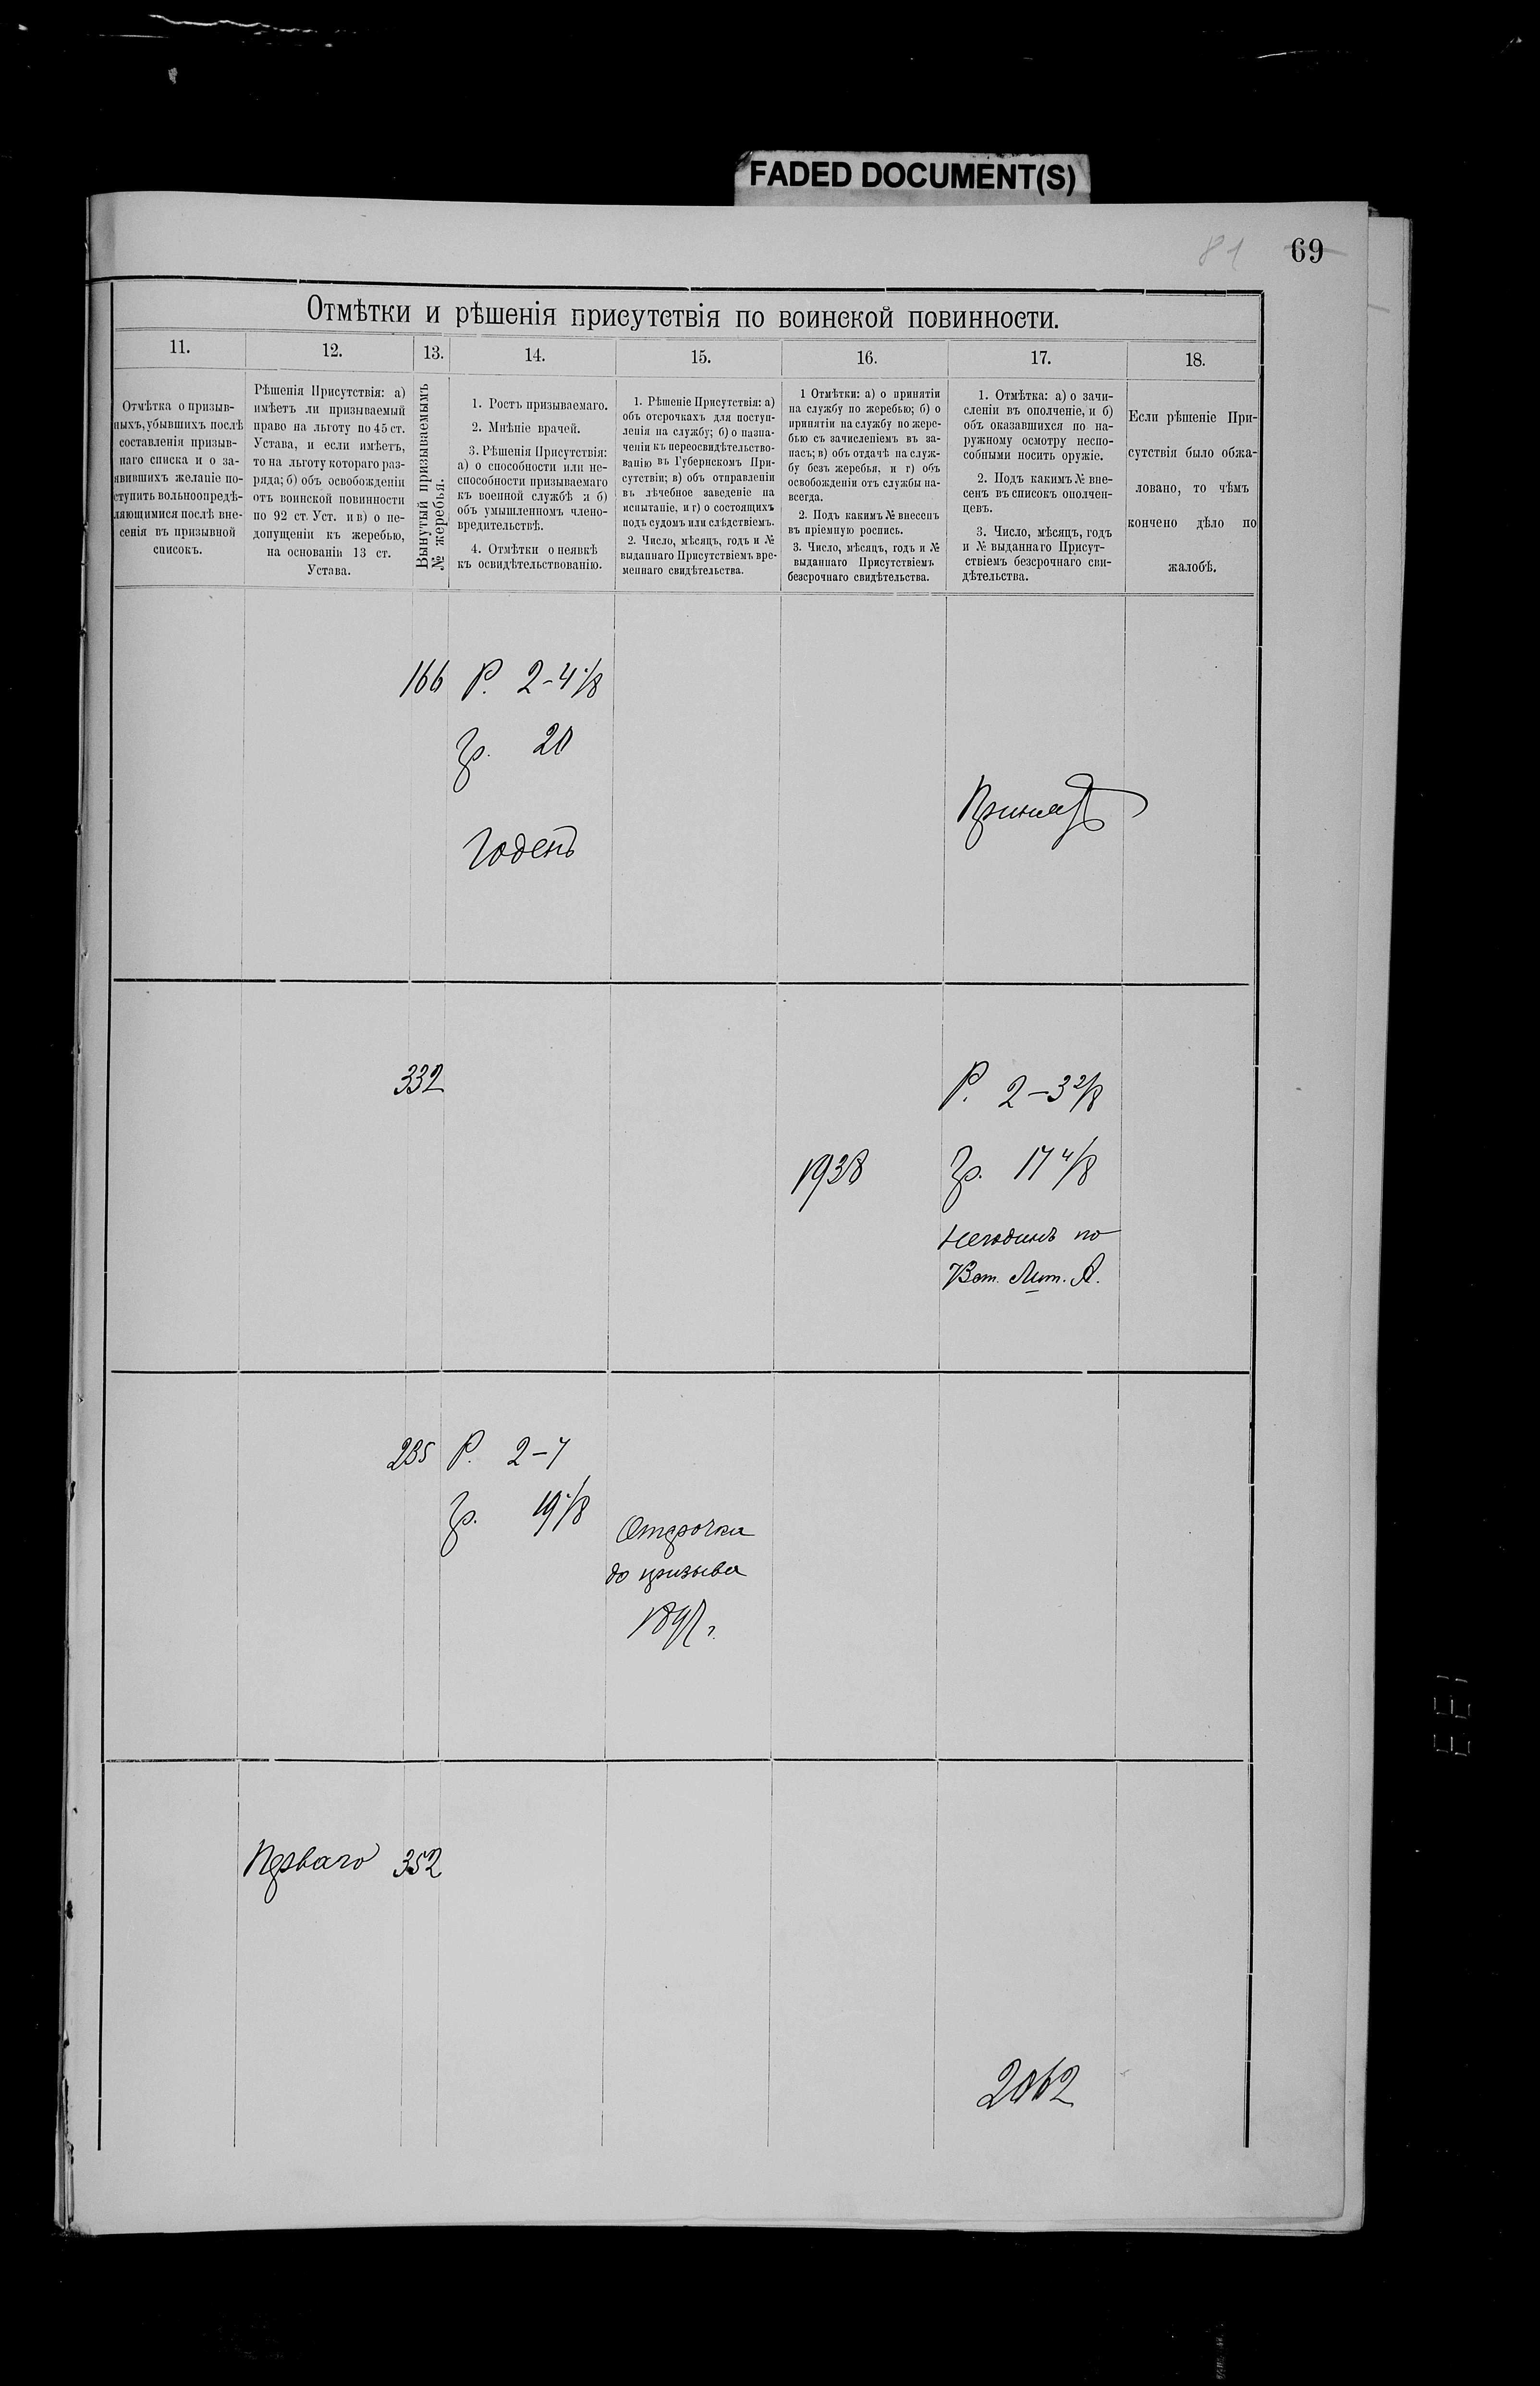 FADED DOCUMENT(S)
81 69
Отмѣтки и рѣшенія присутствія по воинской повинности.
11. 12. 13. 14. 15. 16. 17. 18.
Отмѣтка о призыв-
ныхъ, убывшихъ послѣ
составленія призыв-
наго списка и о за-
явившихъ желаніе по-
ступить вольноопредѣ-
ляющимися послѣ вне-
сенія въ призывной
списокъ.
Рѣшенія Присутствія: а)
имѣетъ ли призываемый
право на льготу по 45 ст.
Устава, и если имѣетъ,
то на льготу котораго раз-
ряда; б) объ освобожденіи
отъ воинской повинности
по 92 ст. Уст. и в) о не-
допущеніи къ жеребью,
на основаніи 13 ст.
Устава.
Вынутый призываемымъ
№ жеребья.
1. Ростъ призываемаго.
2. Мнѣніе врачей.
3. Рѣшенія Присутствія:
а) о способности или не-
способности призываемаго
къ военной службѣ и б)
объ умышленномъ члено-
вредительствѣ.
4. Отмѣтки о неявкѣ
къ освидѣтельствованію.
1. Рѣшеніе Присутствія: а)
объ отсрочкахъ для поступ-
ленія на службу; б) о назна-
ченіи къ переосвидѣтельство-
ванію въ Губернскомъ При-
сутствіи; в) объ отправленіи
въ лѣчебное заведеніе на
испытаніе, и г) о состоящихъ
подъ судомъ или слѣдствіемъ.
2. Число, мѣсяцъ, годъ и №
выданнаго Присутствіемъ вре-
меннаго свидѣтельства.
1 Отмѣтки: а) о принятіи
на службу по жеребью; б) о
принятіи на службу по жере-
бью съ зачисленіемъ въ за-
пасъ; в) объ отдачѣ на служ-
бу безъ жеребья, и г) объ
освобожденіи отъ службы на-
всегда.
2. Подъ какимъ № внесенъ
въ пріемную роспись.
3. Число, мѣсяцъ, годъ и №
выданнаго Присутствіемъ
безсрочнаго свидѣтельства.
1. Отмѣтка: а) о зачи-
сленіи въ ополченіе, и б)
объ оказавшихся по на-
ружному осмотру неспо-
собными носить оружіе.
2. Подъ какимъ № вне-
сенъ въ списокъ ополчен-
цевъ.
3. Число, мѣсяцъ, годъ
и № выданнаго Присут-
ствіемъ безсрочнаго сви-
дѣтельства.
Если рѣшеніе При-
сутствія было обжа-
ловано, то чѣмъ
кончено дѣло по
жалобѣ.
166 Р. 2-4 1/8
Гр. 20
Годенъ
Принятъ
332
1938
Р. 2-3 2/8
Гр. 17 4/8
Негодимъ по
Вѣт. Лит. А.
235 Р. 2-4
Гр. 19 1/8
Отсрочка
до призыва
1897 г.
Перваго 352
2062